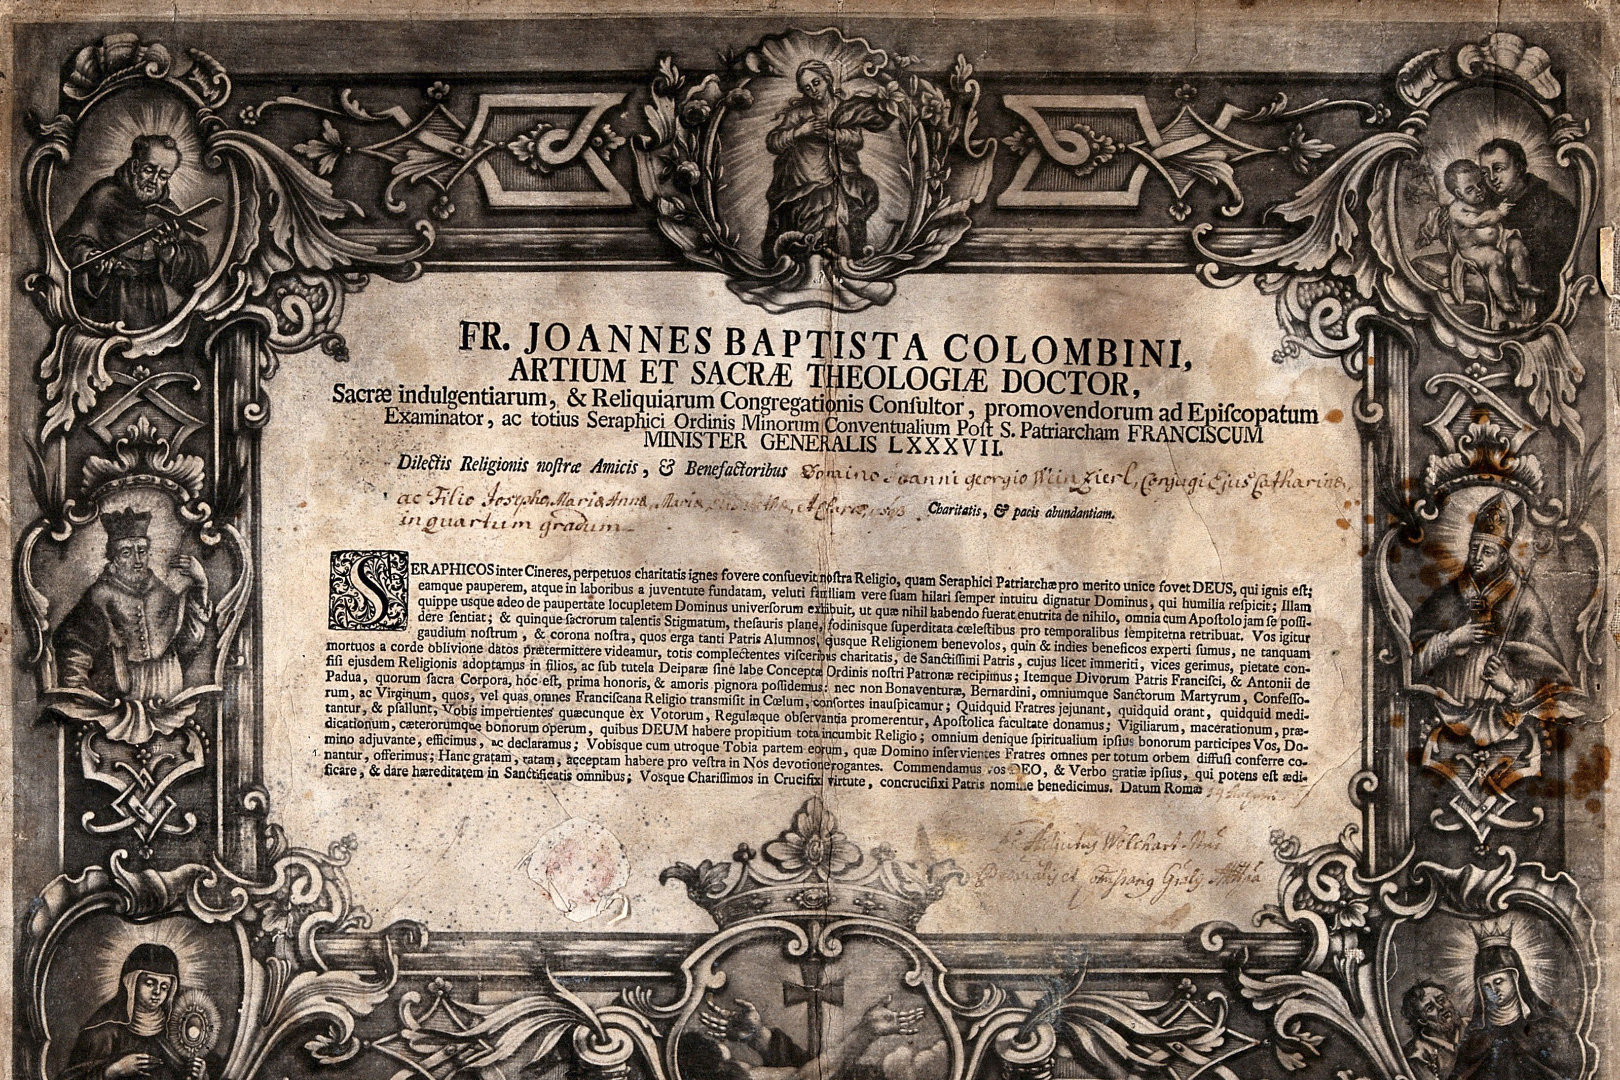 FR. JOANNES BAPTISTA COLOMBINI,
ARTIUM ET SACRÆ THEOLOGIÆ DOCTOR,
Sacræ indulgentiarum, & Reliquiarum Congregationis Conſultor, promovendorum ad Epiſcopatum
Examinator, ac totius Seraphici Ordinis Minorum Conventualium Poſt S. Patriarcham FRANCISCUM
MINISTER GENERALIS LXXXVII.
Dilectis Religionis noſtræ Amicis, & Benefactoribus Domino Joanni georgio Weinzierl, Conjugi Ejus Catharinæ,
ac Filio Josepho, Maria Anna, Maria Charitatis, & pacis abundantiam.
in quartum gradum
SERAPHICOS inter Cineres, perpetuos charitatis ignes fovere conſuevit noſtra Religio, quam Seraphici Patriarchæ pro merito unice fovet DEUS, qui ignis eſt;
eamque pauperem, atque in laboribus a juventute fundatam, veluti familiam vere ſuam hilari ſemper intuitu dignatur Dominus, qui humilia reſpicit; Illam
quippe usque adeo de paupertate locupletem Dominus universorum exhibuit, ut quæ nihil habendo fuerat enutrita de nihilo, omnia cum Apoſtolo jam ſe poſſi-
dere ſentiat; & quinque ſacrorum talentis Stigmatum, theſauris plane, fodinisque ſuperditata cœleſtibus pro temporalibus ſempiterna retribuat. Vos igitur
gaudium noſtrum, & corona noſtra, quos erga tanti Patris Alumnos, ejusque Religionem benevolos, quin & indies beneficos experti ſumus, ne tanquam
mortuos a corde oblivione datos prætermittere videamur, totis complectentes viſceribus charitatis, de Sanctiſſimi Patris, cujus licet immeriti, vices gerimus, pietate con-
fiſi ejusdem Religionis adoptamus in filios, ac ſub tutela Deiparæ ſine labe Conceptæ Ordinis noſtri Patronæ recipimus; Itemque Divorum Patris Franciſci, & Antonii de
Padua, quorum ſacra Corpora, hoc eſt, prima honoris, & amoris pignora poſſidemus: nec non Bonaventuræ, Bernardini, omniumque Sanctorum Martyrum, Confeſſo-
rum, ac Virginum, quos, vel quas omnes Franciſcana Religio transmiſit in Cœlum, conſortes inauſpicamur; Quidquid Fratres jejunant, quidquid orant, quidquid medi-
tantur, & pſallunt, Vobis impertientes quæcunque ex Votorum, Regulæque obſervantia promerentur, Apoſtolica facultate donamus; Vigiliarum, macerationum, præ-
dicationum, cæterorumque bonorum operum, quibus DEUM habere propitium tota incumbit Religio; omnium denique ſpiritualium ipſius bonorum participes Vos, Do-
mino adjuvante, efficimus, ac declaramus; Vobisque cum utroque Tobia partem eorum, quæ Domino inſervientes Fratres omnes per totum orbem diffuſi conferre co-
nantur, offerimus; Hanc gratam, ratam, acceptam habere pro veſtra in Nos devotione rogantes. Commendamus vos DEO, & Verbo gratiæ ipſius, qui potens eſt ædi-
ficare, & dare hæreditatem in Sanctificatis omnibus; Vosque Chariſſimos in Crucifixi virtute, concrucifixi Patris nomine benedicimus. Datum Romæ